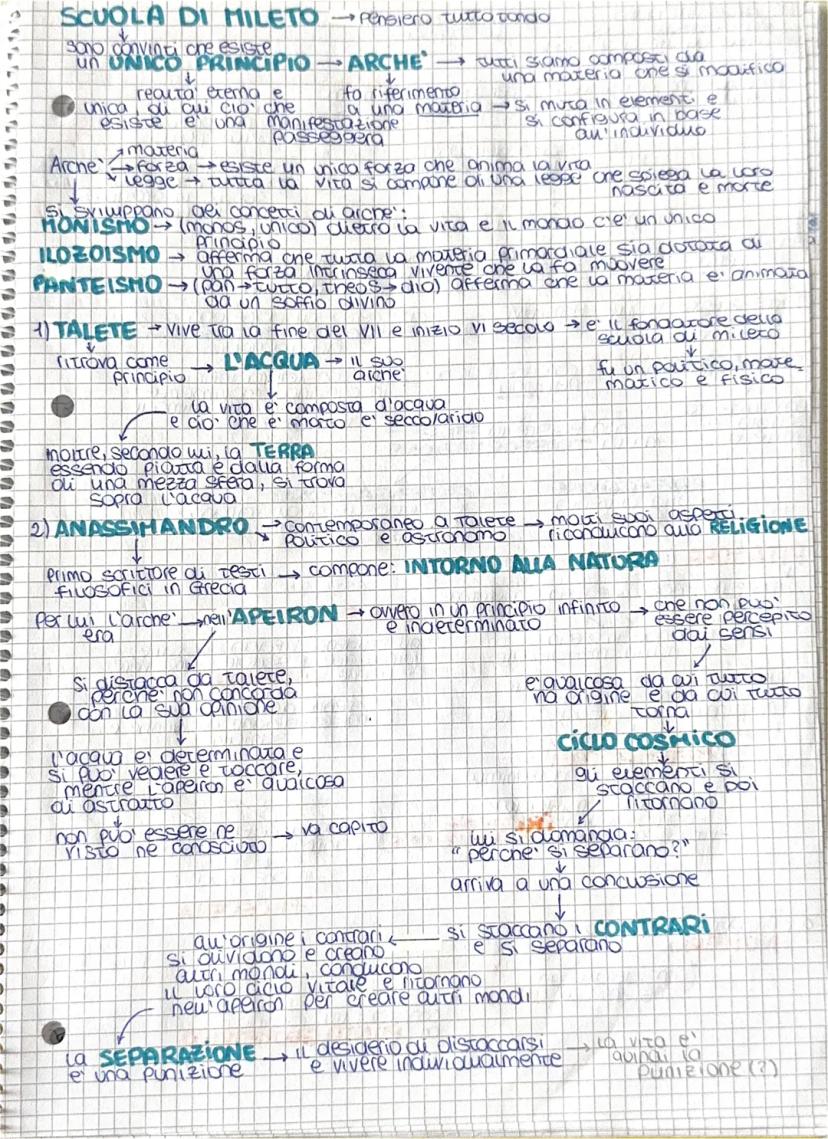 SCUOLA DI MILETO → pensiero tutto tondo
sono convinti che esiste
un UNICO PRINCIPIO → ARCHE' → tutti siamo composti da
una materia che si modifica
realtà eterna e
unica, di cui ciò che
esiste è una manifestazione
passeggera
fa riferimento
a una materia → si muta in elementi e
si configura in base
all'individuo
Arche' → materia
→ forza → esiste un unica forza che anima la vita
→ legge → tutta la vita si compone di una legge che spiega la loro
nascita e morte
si sviluppano dei concetti di arche':
MONISMO → (monos, unico) dietro la vita e il mondo c'è un unico
principio
ILOZOISMO → afferma che tutta la materia primordiale sia dotata di
una forza intrinseca vivente che la fa muovere
PANTEISMO → (pan → tutto, theos → dio) afferma che la materia è animata
da un soffio divino
1) TALETE → vive tra la fine del VII e inizio VI secolo → è il fondatore della
scuola di mileto
fu un politico, mate
matico e fisico
ritrova come
principio → L'ACQUA → il suo
arche'
la vita è composta d'acqua
e ciò che è morto è secco/arido
inoltre, secondo lui, la TERRA
essendo piatta e dalla forma
di una mezza sfera, si trova
sopra l'acqua
2) ANASSIMANDRO → contemporaneo a Talete → molti suoi aspetti
politico e astronomo riconducono alla RELIGIONE
primo scrittore di testi → compone: INTORNO ALLA NATURA
filosofici in Grecia
Per lui l'arche' → nell'APEIRON → ovvero in un principio infinito → che non può
era e indeterminato essere percepito
dai sensi
si distacca da Talete,
perché non concorda
con la sua opinione
l'acqua è determinata e
si può vedere e toccare,
mentre l'apeiron è qualcosa
di astratto
non può essere ne
visto ne conosciuto → va capito
è qualcosa da cui tutto
ha origine e da cui tutto
torna
CICLO COSMICO
gli elementi si
staccano e poi
ritornano
lui si domanda:
"perché si separano?"
arriva a una conclusione
si staccano i CONTRARI
e si separano
all'origine i contrari
si dividono e creano
altri mondi, conducono
il loro ciclo vitale e ritornano
nell'apeiron per creare altri mondi
la SEPARAZIONE → il desiderio di distaccarsi → la vita è
è una punizione e vivere individualmente quindi la
punizione (?)